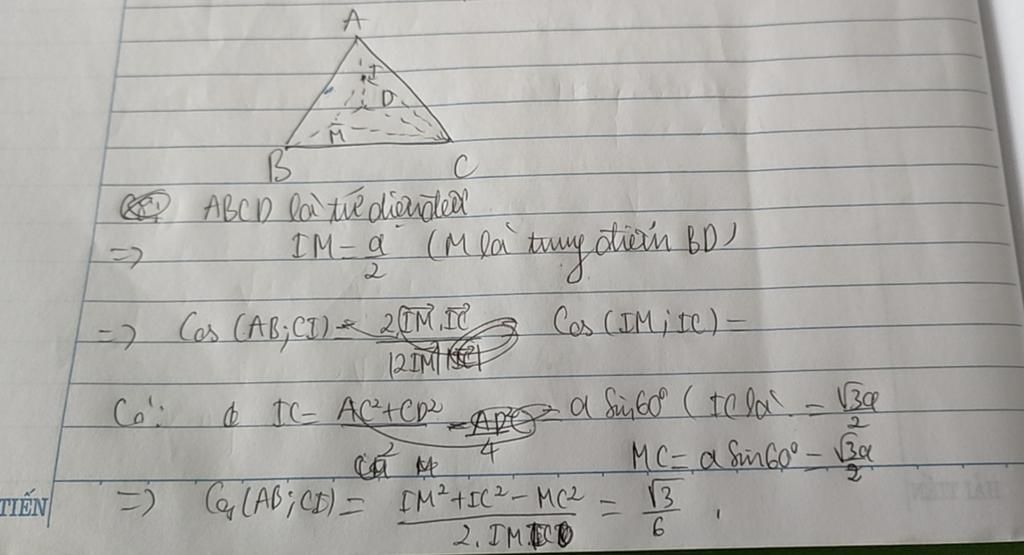 A
I
D
M
B
C
ABCD là tứ diện đều
=> IM = a/2 (M là trung điểm BD)
=> Cos (AB; CI) = 2 IM. IC / |2IM| Cos (IM; IC) =
Có: IC = AC²+CD² / = a Sin60° (IC là = √3a/2
4
MC = a Sin60° = √3a/2
TIẾN => Cos (AB; CI) = IM² + IC² - MC² / 2. IM IC = √3/6 .